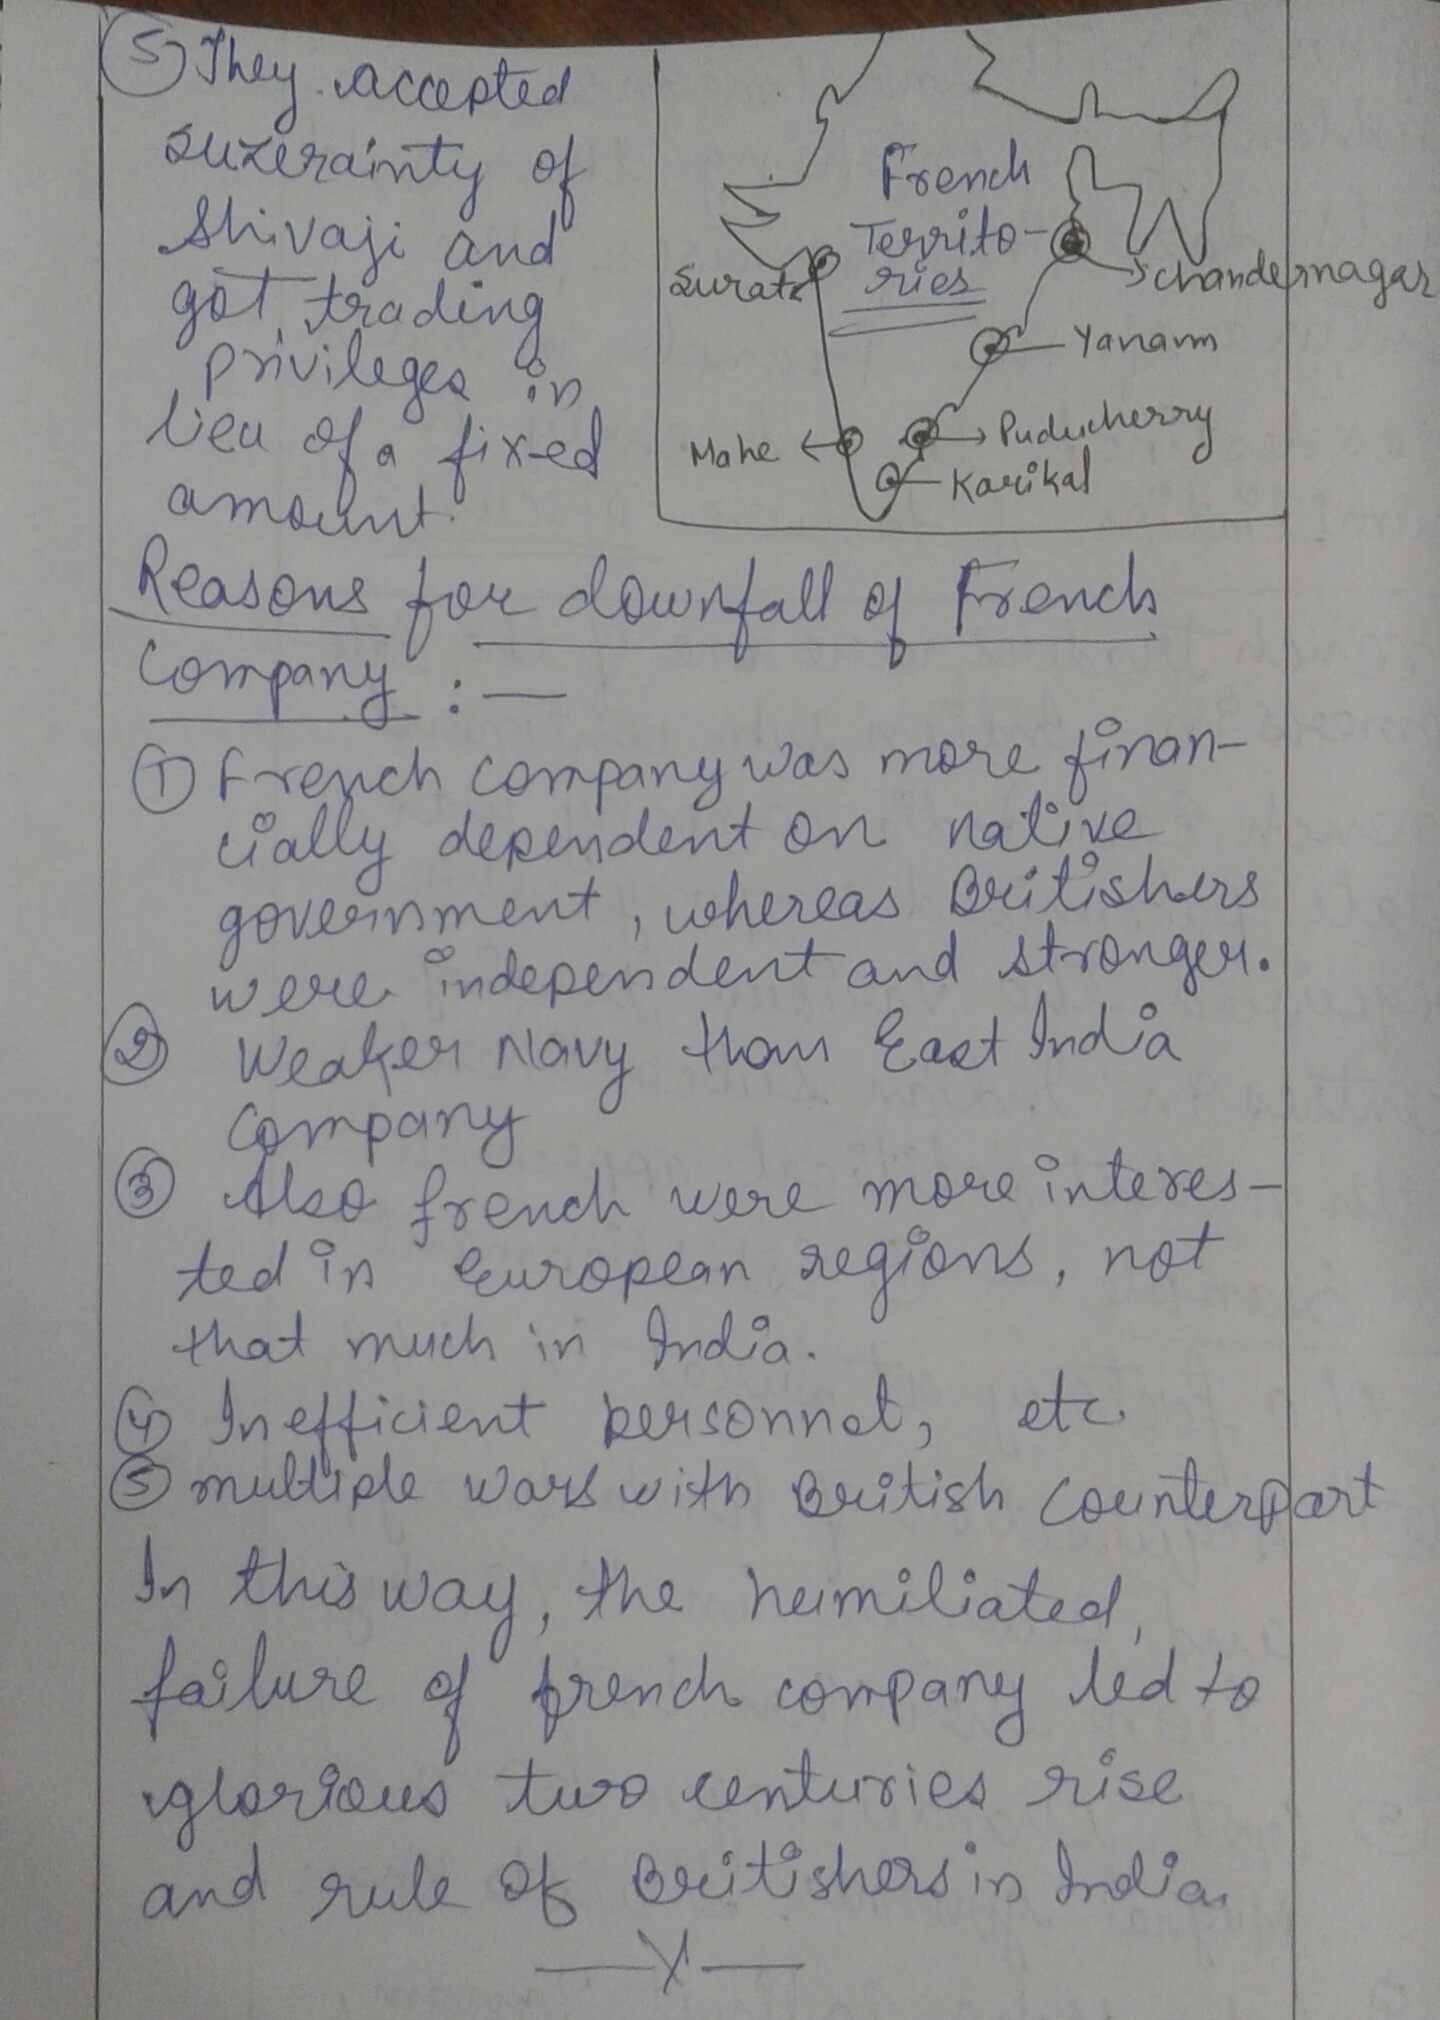 ⑤ They accepted
suzerainty of
Shivaji and
got trading
privileges in
lieu of a fixed
amount.
French
Territo-
ries
Surat
Chandernagar
Yanam
Mahe
Puducherry
Karikal
Reasons for downfall of French
Company :—
① French company was more finan-
cially dependent on native
government, whereas Britishers
were independent and stronger.
② Weaker Navy than East India
Company
③ Also french were more interes-
ted in European regions, not
that much in India.
④ Inefficient personnel, etc.
⑤ multiple wars with British Counterpart
In this way, the humiliated,
failure of french company led to
glorious two centuries rise
and rule of Britishers in India.
—X—